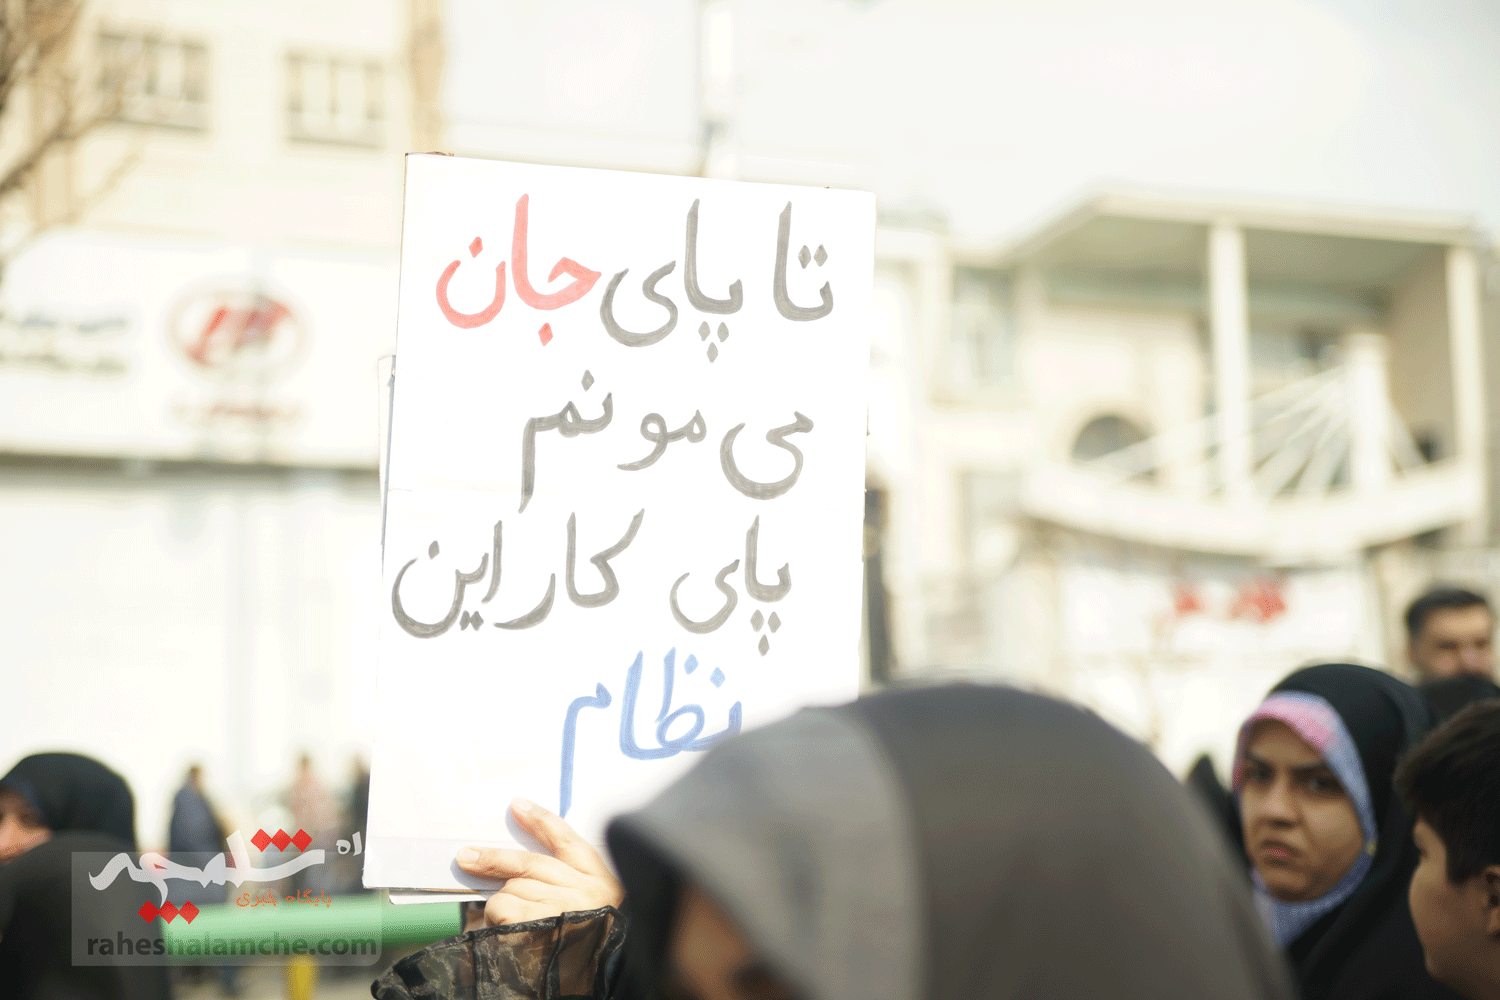 تا پای جان
می مونم
پای کار این
نظام
راه شلمچه
پایگاه خبری
raheshalamche.com